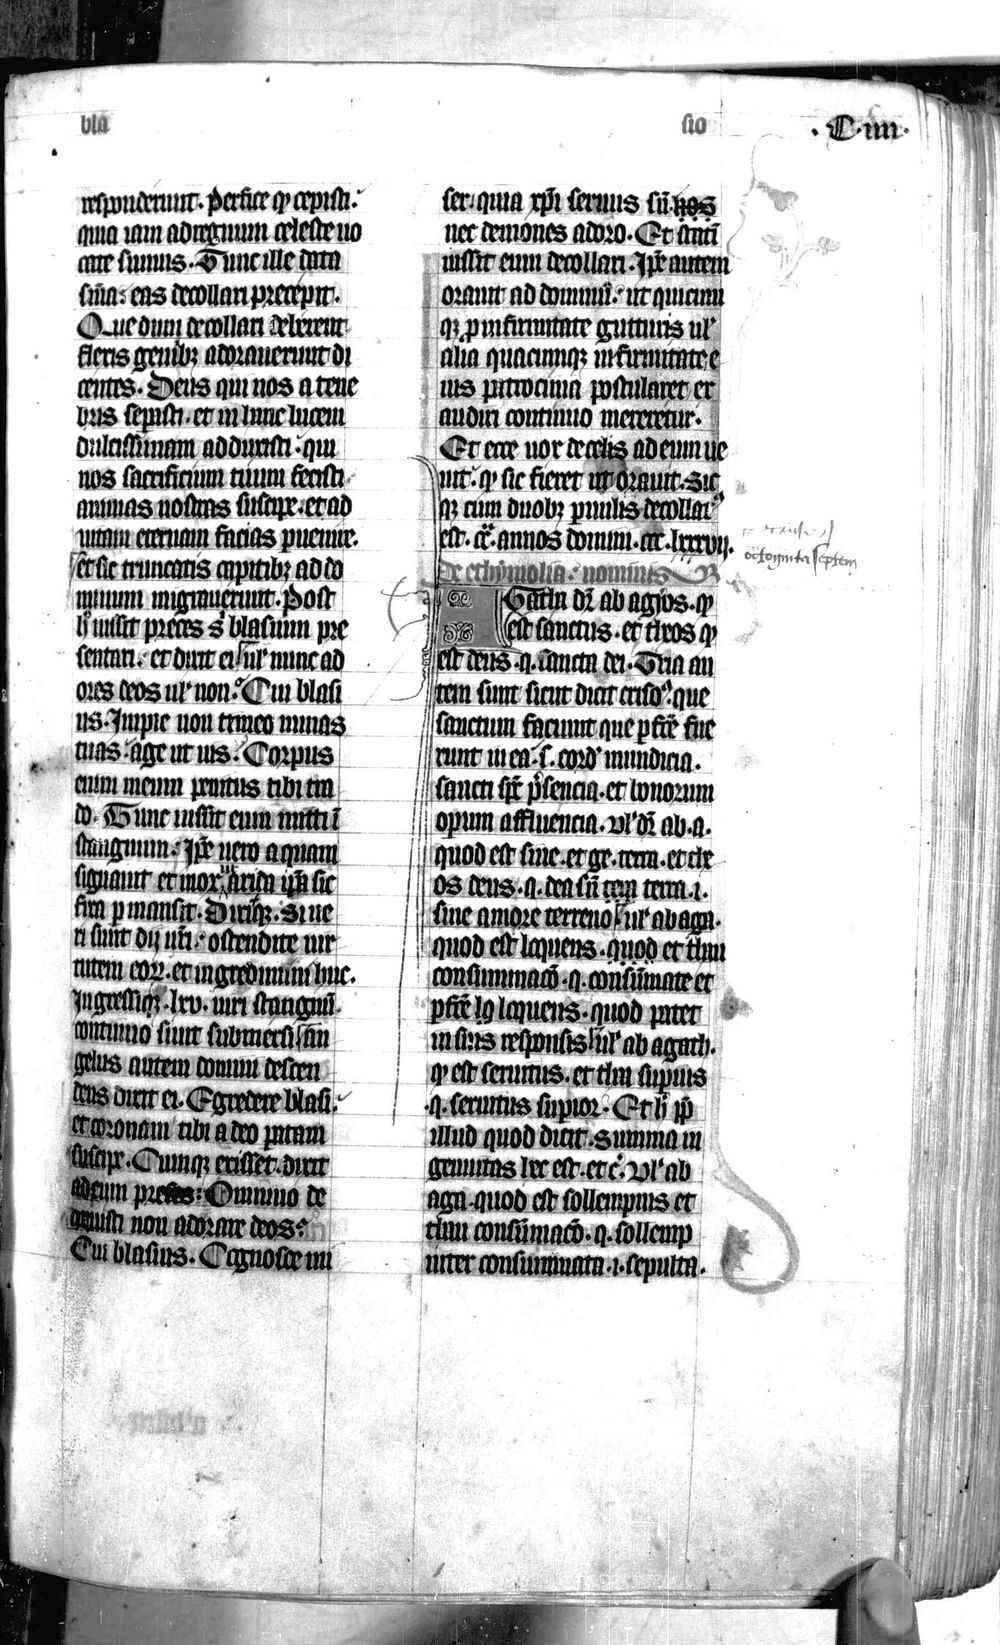 bla
sio
·C·iiii·
responderunt. Perfice qd cepisti.
quia iam ad regnum celeste uo
cate sumus. Tunc ille data
sn̄ia: eas decollari precepit.
Que dum decollari deberent
flexis genibꝫ adorauerunt di
centes. Deus qui nos a tene
bris sepasti. et in hanc lucem
dulcissimam adduxisti: qui
nos sacrificium tuum fecisti
animas nostras suscipe. et ad
uitam eternam facias puenire.
et sic truncatis capitibꝫ ad do
minum migrauerunt. Post
h̄ iussit preses s. blasium pre
sentari. et dixit ei ul' nunc ad
ores deos ul' non. Cui blasi
us. Impie non timeo minas
tuas: age ut uis. Corpus
enim meum penitus tibi tra
do. Tunc iussit eum mitti ī
stangnum. Ip̄e uero aquam
signauit et mox arida ip̄a sic
fixa pmansit. Dixitqꝫ. Si ue
ri sunt dij ur̄i: ostendite uir
tutem eoꝝ. et ingredimini huc.
Ingressiqꝫ .lxv. uiri stangnū
continuo sunt submersi an
gelus autem domini descen
dens dixit ei. Egredere blasi.
et coronam tibi a deo patam
suscipe. Cumqꝫ exisset. dixit
ad eum preses: Omnino de
creuisti non adorare deos.
Cui blasius. Cognosce mi
ser. quia xp̄i seruus sū. nos
nec demones adoro. Et statī
iussit eum decollari. Ip̄e autem
orauit ad dominū. ut quicun
qꝫ p infirmitate gutturis ul'
alia quacunqꝫ infirmitate e
ius patrocinia postularet et
audiri continuo mereretur.
Et ecce uox de celis ad eum ue
nit. qd sic fieret ut orauit. Sic
qꝫ cum duobꝫ pruulis decollat
est. cc̄. annos domini. ccc. lxxxvij.
octoginta septem
de ethymolia. nominis
Gatha dr̄ ab agyos. qd
est sanctus. et theos qd
est deus .q. sancta dei. Tria au
tem sunt sicut dicit crisos. que
sanctum faciunt que pfc̄e fue
runt in ea .s. cord' mundicia.
sancti sp̄c p̄sencia. et bonorum
opum affluencia. Vl' dr̄ ab .a.
quod est sine. et ge. terra. et the
os deus .q. dea sn̄ terra terra .i.
sine amore terreno ul' ab aga.
quod est loquens. quod et thau
consummacō .q. consūmate et
pfc̄e loquens. quod patet
in suis responsis ul' ab agath.
qd est seruitus. et thau supius
.q. seruitus supior. Et h̄ ip̄
illud quod dicit. Summa in
genuitas hec est. et c̄. Vl' ab
aga. quod est sollempnis et
thau consūmacō .q. sollemp
niter consummata .i. sepulta.